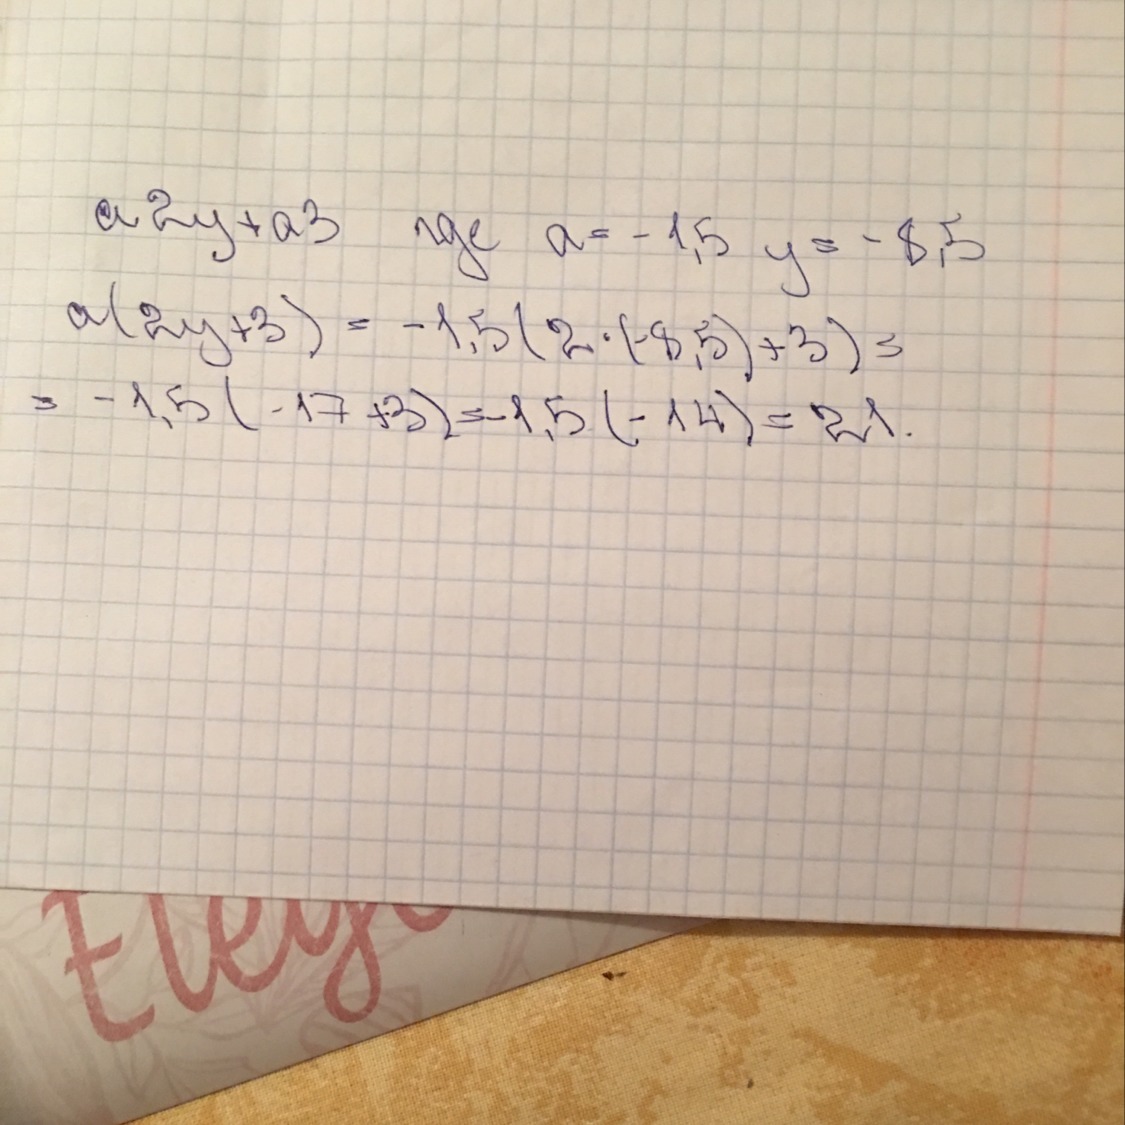 a2y+a3 где a=-1,5 y=-8,5
a(2y+3) = -1,5(2·(-8,5)+3)=
= -1,5(-17+3)=-1,5(-14)=21.